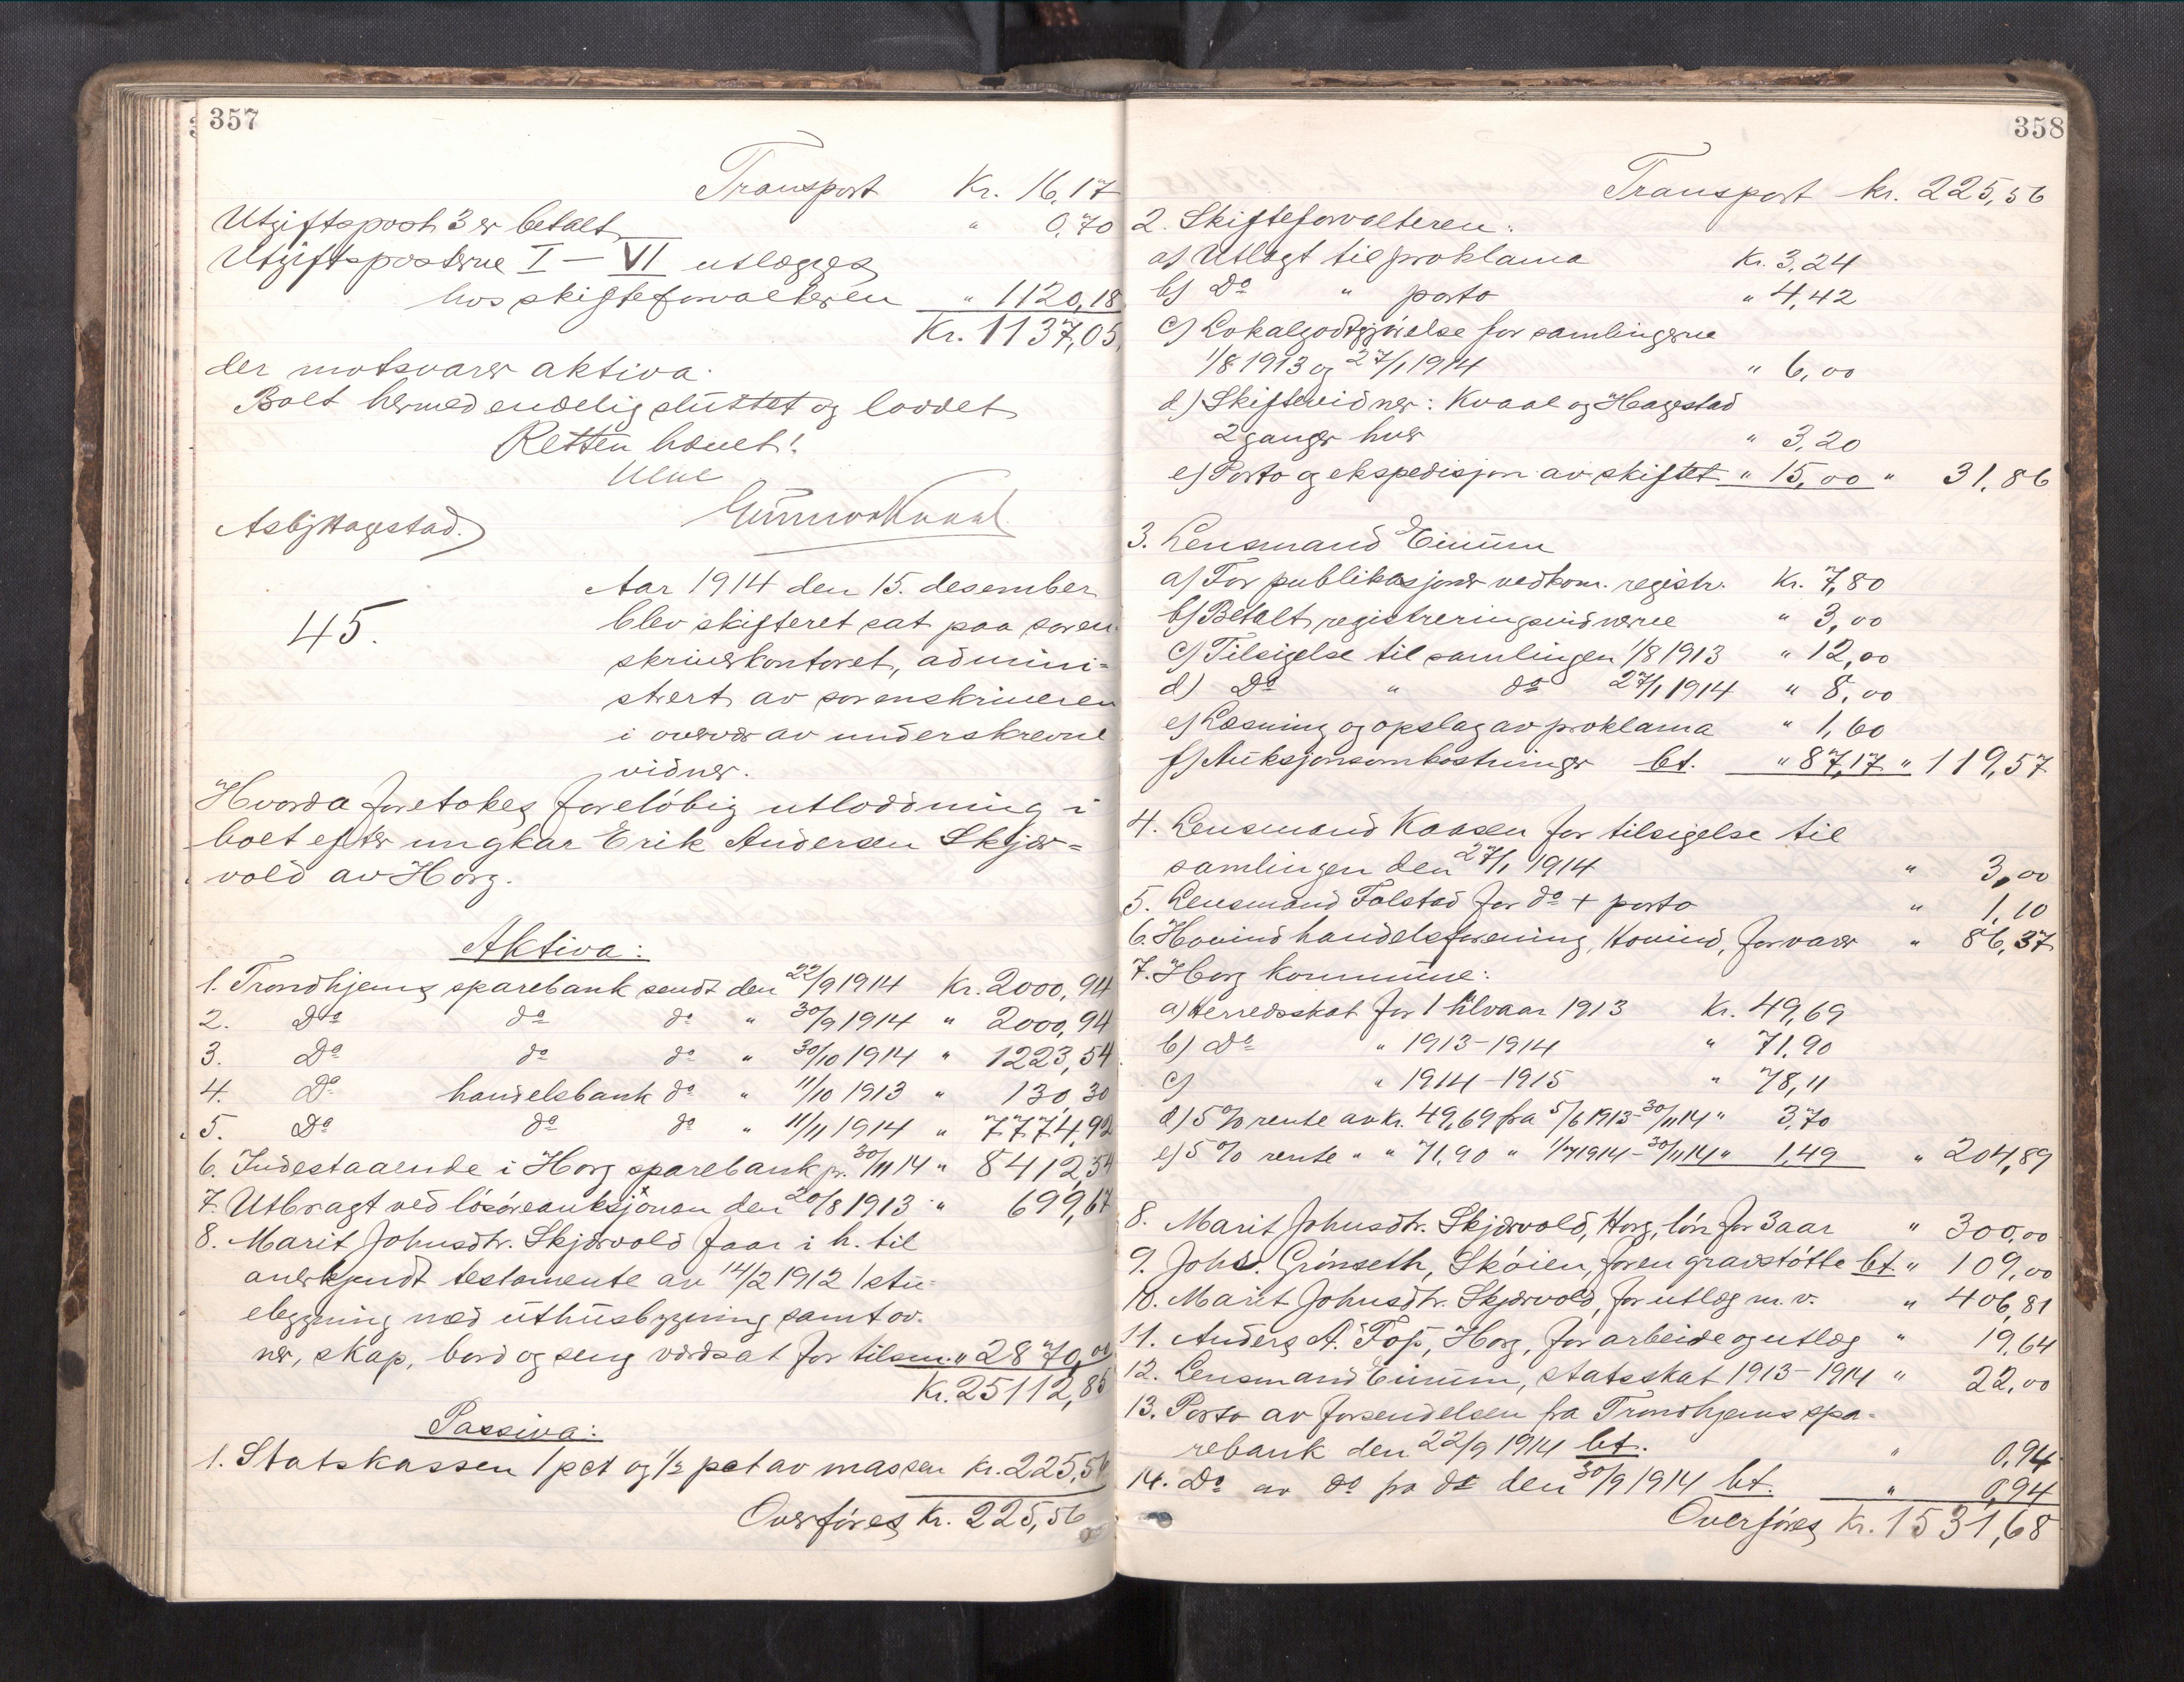 357
Transport Kr. 16,17
Utgiftspost 3 er betalt " 0,70
Utgiftsposterne I – VI utlægges
hos skifteforvalteren " 1120,18
Kr. 1137,05,
der motsvarer aktiva.
Boet hermed endelig sluttet og loddet
Retten hævet!
Asbj Hagestad. Gunnar Kvaal
45.
Aar 1914 den 15. desember
blev skifteret sat paa soren-
skriverkontoret, admini=
strert av sorenskriveren
i overvær av underskrevne
vidner.
Hvorda foretokes foreløbig utlodning i
boet efter ungkar Erik Andersen Skjær=
vold av Horg.
Aktiva:
1. Trondhjems sparebank sendt den 22/9 1914 Kr. 2000,94
2. Do do do " 30/9 1914 " 2000,94
3. Do do do " 30/10 1914 " 1223,54
4. Do handelsbank do " 11/10 1913 " 130,30
5. Do do do " 11/11 1914 " 7774,92
6. Indestaaende i Horg sparebank pr. 30/11 14 " 8412,54
7. Utbragt ved løsøreauksjonen den 20/8 1913 " 699,67
8. Marit Johnsdtr. Skjærvold faar i h. til
anerkjendt testamente av 14/2 1912 1 stu-
ebygning med uthusbygning samt ov-
ner, skap, bord og seng værdsat for tilsm. " 2870,00
Kr. 25112,85
Passiva:
1. Statskassen 1 pct og 1/2 pct av massen Kr. 225,56
Overføres Kr. 225,56
358
Transport kr. 225,56
2. Skifteforvalteren:
a) Utlagt til proklama Kr. 3,24
b) Do " porto " 4,42
c) Lokalgodtgjørelse for samlingerne
1/8 1913 og 27/1 1914 " 6,00
d) Skiftevidner: Kvaal og Hagestad
2 ganger hver " 3,20
e) Porto og ekspedisjon av skiftet " 15,00 " 31,86
3. Lensmand Einum
a) For publikasjoner vedkom. registr. Kr. 7,80
b) Betalt registreringsvidnerne " 3,00
c) Tilsigelse til samlingen 1/8 1913 " 12,00
d) Do " do 27/1 1914 " 8,00
e) Læsning og opslag av proklama " 1,60
f) Auksjonsomkostninger bt. " 87,17 " 119,57
4. Lensmand Kaasen for tilsigelse til
samlingen den 27/1 1914 " 3,00
5. Lensmand Folstad for do + porto " 1,10
6. Hovind handelsforening, Hovind, for varer " 86,37
7. Horg kommune:
a) Herredsskat for 1 halvaar 1913 Kr. 49,69
b) Do " 1913–1914 " 71,90
c) " 1914–1915 " 78,11
d) 5 % rente av kr. 49,69 fra 5/6 1913–30/11 14 " 3,70
e) 5 % rente " " 71,90 " 1/7 1914–30/11 14 " 1,49 " 204,89
8. Marit Johnsdtr. Skjærvold, Horg, løn for 3 aar " 300,00
9. Johs. Grinseth, Skóien, for en gravstøtte bt. " 109,00
10. Marit Johnsdtr. Skjærvold, for utlæg m. v. " 406,81
11. Anders A. Fop, Horg, for arbeide og utlæg " 19,64
12. Lensmand Einum, statsskat 1913–1914 " 22,00
13. Porto av forsendelsen fra Trondhjems spa-
rebank den 22/9 1914 bt. " 0,94
14. Do av do fra do den 30/9 1914 bt. " 0,94
Overføres Kr. 1531,68